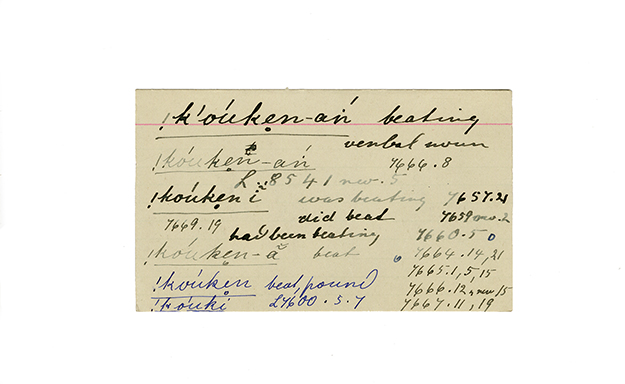 !k'óúkẹn-aṅ́ beating
verbal noun
!kóúkẹn̄-aṅ́ 7666.8
L 8541 rev. 5
!kóúkẹn ĭ was beating 7657.21
did beat 7659 rev. 2
7669.19
had been beating 7660.5
!kóúkẹn-ă beat 7664.14,21
7665.1,5,15
!kóúkẹn beat, pound 7666.12, rev, 15
!kóúki L7600.5.7 7667.11,19